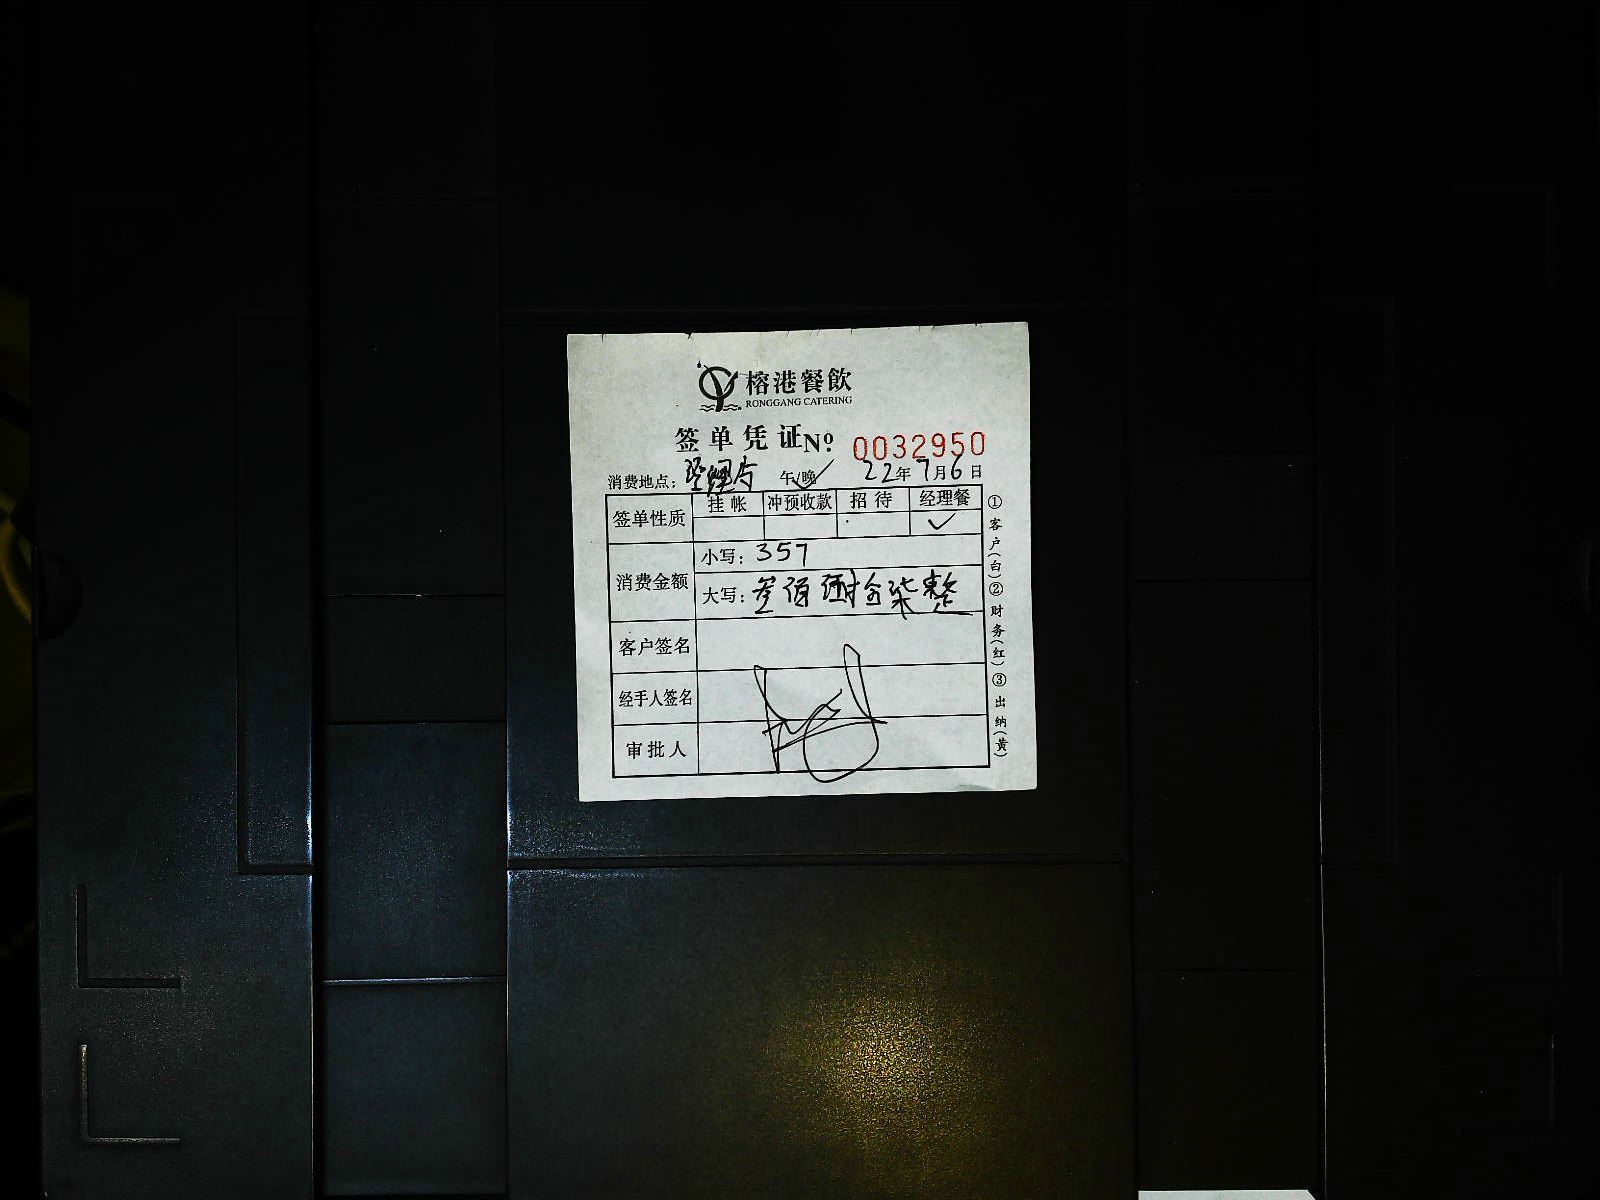 榕港餐飲
RONGGANG CATERING
签单凭证No. 0032950
消费地点: 午/晚 22年7月6日
签单性质 挂帐 冲预收款 招待 经理餐
✓
消费金额 小写: 357
大写: 叁佰 拾柒整
客户签名
经手人签名
审批人
①客户(白)②财务(红)③出纳(黄)